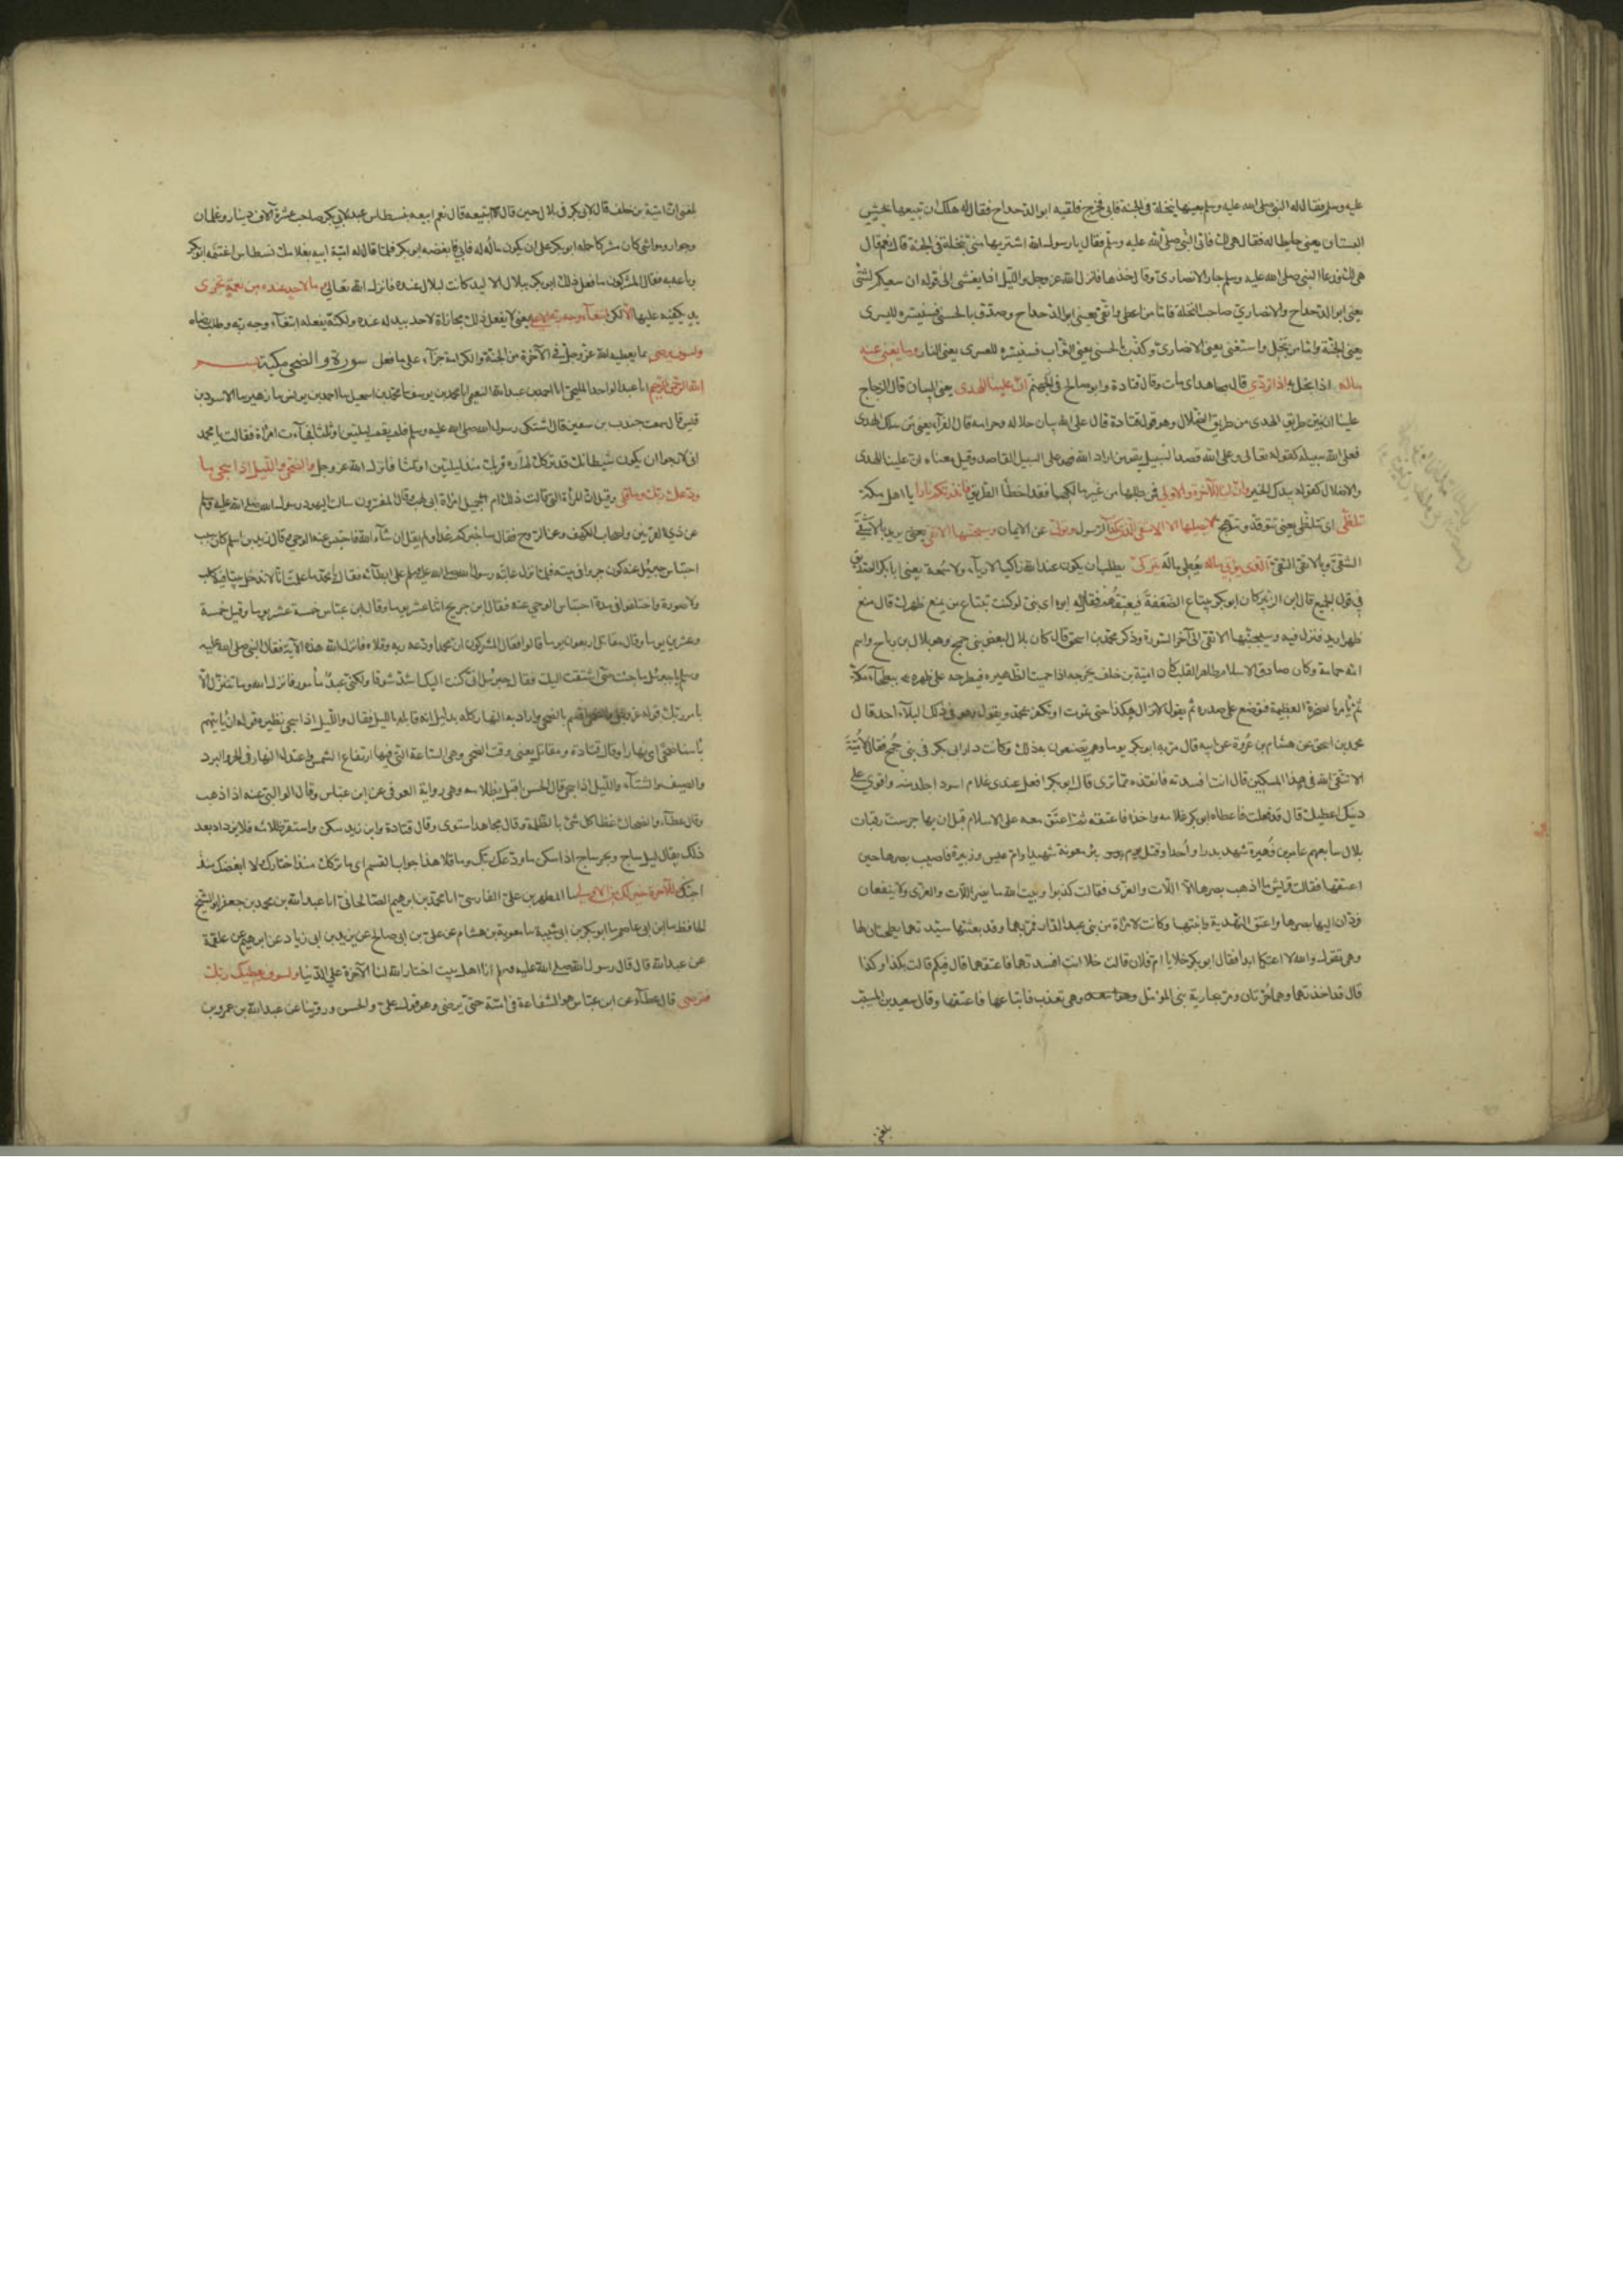 عليه وسلم فقال له النبي صلى الله عليه وسلم بعنيها بنخلة في الجنة فابى فخرج فلقيه ابو الدحداح فقال له هل لك ان تبيعها بحش
البستان يعني حايطا له فقال هي لك فاتى النبي صلى الله عليه وسلم فقال يا رسول الله اشتريها مني بنخلة في الجنة قال نعم قال
هي لك فدعا النبي صلى الله عليه وسلم جار الانصاري وقال خذها فانزل الله عز وجل والليل اذا يغشى الى قوله ان سعيكم لشتى
يعني ابو الدحداح والانصاري صاحب النخلة فاما من اعطى واتقى يعني ابو الدحداح وصدق بالحسنى فسنيسره لليسرى
يعني الجنة واما من بخل واستغنى يعني الانصاري وكذب بالحسنى يعني الثواب فسنيسره للعسرى يعني النار وما يغني عنه
ماله اذا بخل به اذا تردى قال مجاهد اي مات وقال قتادة وابو صالح في جهنم ان علينا للهدى يعني البيان قال الزجاج
علينا ان نبين طريق الهدى من طريق الضلال وهو قول قتادة قال على الله بيان حلاله وحرامه قال الفراء يعني من سلك الهدى
فعلى الله سبيله كقوله تعالى وعلى الله قصد السبيل يقول من اراد الله فهو على السبيل القاصد وقيل معناه ان علينا للهدى
والاضلال كقوله بيدك الخير وان لنا للآخرة والاولى فمن طلبها من غير مالكهما فقد اخطأ الطريق فانذرتكم نارا يا اهل مكة
تلظى اي تتلظى يعني تتوقد وتتوهج لا يصليها الا الاشقى الذي كذب الرسول وتولى عن الايمان وسيجنبها الاتقى يعني يريد بالاشقى
الشقي وبالاتقى التقي الذي يؤتي ماله يعطي ماله يتزكى يطلب ان يكون عند الله زاكيا لا رياء ولا سمعة يعني ابا بكر الصديق
في قول الجميع قال ابن الزبير كان ابو بكر يبتاع الضعفة فيعتقهم فقال له ابوه اي بني لو كنت تبتاع من يمنع ظهرك قال منع
ظهري اريد فنزل فيه وسيجنبها الاتقى الى آخر السورة وذكر محمد بن اسحق قال كان بلال لبعض بني جمح وهو بلال بن رباح واسم
امه حمامة وكان صادق الاسلام طاهر القلب كان امية بن خلف يخرجه اذا حميت الظهيرة فيطرحه على ظهره ببطحاء مكة
ثم يأمر بالصخرة العظيمة فتوضع على صدره ثم يقول لا تزال هكذا حتى تموت او تكفر بمحمد ويقول وهو في ذلك البلاء احد قال
محمد بن اسحق عن هشام بن عروة عن ابيه قال مر به ابو بكر يوما وهم يصنعون به ذلك وكانت دار ابي بكر في بني جمح فقال لامية
الا تتقي الله في هذا المسكين قال انت افسدته فانقذه مما ترى قال ابو بكر افعل عندي غلام اسود اجلد منه واقوى على
دينك اعطيك قال قد فعلت فاعطاه ابو بكر غلامه واخذه فاعتقه ثم اعتق معه على الاسلام قبل ان يهاجر ست رقبات
بلال سابعهم عامر بن فهيرة شهد بدرا واحدا وقتل يوم بئر معونة شهيدا وام عميس وزنيرة فاصيب بصرها حين
اعتقها فقالت قريش ما اذهب بصرها الا اللات والعزى فقالت كذبوا وبيت الله ما يضر اللات والعزى ولا ينفعان
فرد الله اليها بصرها واعتق النهدية وابنتها وكانت لامرأة من بني عبد الدار فمر بهما وقد بعثتهما سيدتهما يطحنان لها
وهي تقول والله لا اعتقكما ابدا فقال ابو بكر خلا يا ام فلان قالت خلا انت افسدتهما فاعتقهما قال فبكم قالت بكذا وكذا
قال قد اخذتهما وهما حرتان ومر بجارية بني المؤمل وهي تعذب فابتاعها فاعتقها وقال سعيد بن المسيب
بلغني ان امية بن خلف قال لابي بكر في بلال حين قال اتبيعه قال نعم ابيعه بنسطاس عبد لابي بكر صاحب عشرة آلاف دينار وغلمان
وجوار ومواشي كان مشركا حمله ابو بكر على ان يكون ماله له فابى فابغضه ابو بكر فلما قال له امية ابيعه بغلامك نسطاس اغتنمه ابو بكر
وباعه به فقال المشركون ما فعل ذلك ابو بكر ببلال الا ليد كانت لبلال عنده فانزل الله تعالى وما لاحد عنده من نعمة تجزى
يد يكافيه عليها الا لكن ابتغاء وجه ربه الاعلى يعني لا يفعل ذلك مجازاة لاحد بيد له عنده ولكنه يفعله ابتغاء وجه ربه وطلب رضاه
ولسوف يرضى بما يعطيه الله عز وجل في الآخرة من الجنة والكرامة جزاء على ما فعل سورة والضحى مكية بسم
الله الرحمن الرحيم انا عبد الواحد المليحي انا احمد بن عبد الله النعيمي انا محمد بن يوسف نا محمد بن اسمعيل نا احمد بن يونس نا زهير نا الاسود بن
قيس قال سمعت جندب بن سفين قال اشتكى رسول الله صلى الله عليه وسلم فلم يقم ليلتين او ثلثا فجاءت امرأة فقالت يا محمد
اني لارجو ان يكون شيطانك قد تركك لم اره قربك منذ ليلتين او ثلثا فانزل الله عز وجل والضحى والليل اذا سجى ما
ودعك ربك وما قلى وقيل ان المرأة التي قالت ذلك ام جميل امرأة ابي لهب وقال المفسرون سالت اليهود رسول الله صلى الله عليه وسلم
عن ذي القرنين واصحاب الكهف وعن الروح فقال ساخبركم غدا ولم يقل ان شاء الله فاحتبس عنه الوحي وقال زيد بن اسلم كان سبب
احتباس جبرئيل عنه كون جرو في بيته فلما نزل عاتبه رسول الله صلى الله عليه وسلم على ابطائه فقال يا محمد اما علمت انا لا ندخل بيتا فيه كلب
ولا صورة واختلفوا في مدة احتباس الوحي عنه فقال ابن جريج اثنا عشر يوما وقال ابن عباس خمسة عشر يوما وقيل خمسة
وعشرين يوما وقال مقاتل اربعون يوما قالوا فقال المشركون ان محمدا ودعه ربه وقلاه فانزل الله هذه الآية فقال النبي صلى الله عليه
وسلم يا جبرئيل ما جئت حتى اشتقت اليك فقال جبرئيل اني كنت اليك اشد شوقا ولكني عبد مأمور فانزل الله وما نتنزل الا
بامر ربك قوله عز وجل والضحى اقسم بالضحى واراد به النهار كله بدليل انه قابله بالليل فقال والليل اذا سجى نظيره قوله ان ياتيهم
بأسنا ضحى اي نهارا وقال قتادة ومقاتل يعني وقت الضحى وهي الساعة التي فيها ارتفاع الشمس واعتدال النهار في الحر والبرد
والصيف والشتاء والليل اذا سجى قال الحسن اقبل بظلامه وهي رواية العوفي عن ابن عباس وقال الوالبي عنه اذا ذهب
وقال عطاء والضحاك غطا كل شئ بالظلمة وقال مجاهد استوى وقال قتادة وابن زيد سكن واستقر ظلامه فلا يزداد بعد
ذلك يقال ليل ساج وبحر ساج اذا سكن ما ودعك ربك وما قلا هذا جواب القسم اي ما تركك منذ اختارك ولا ابغضك منذ
احبك وللآخرة خير لك من الاولى نا المطهر بن علي الفارسي انا محمد بن ابرهيم الصالحاني انا عبد الله بن محمد بن جعفر ابو الشيخ
الحافظ نا ابن ابي عاصم نا ابو بكر بن ابي شيبة نا معوية بن هشام عن علي بن ابي صالح عن يزيد بن ابي زياد عن ابرهيم عن علقمة
عن عبد الله قال قال رسول الله صلى الله عليه وسلم انا اهل بيت اختار الله لنا الآخرة على الدنيا ولسوف يعطيك ربك
فترضى قال عطاء عن ابن عباس هو الشفاعة في امته حتى يرضى وهو قول علي والحسن وروينا عن عبد الله بن عمرو بن